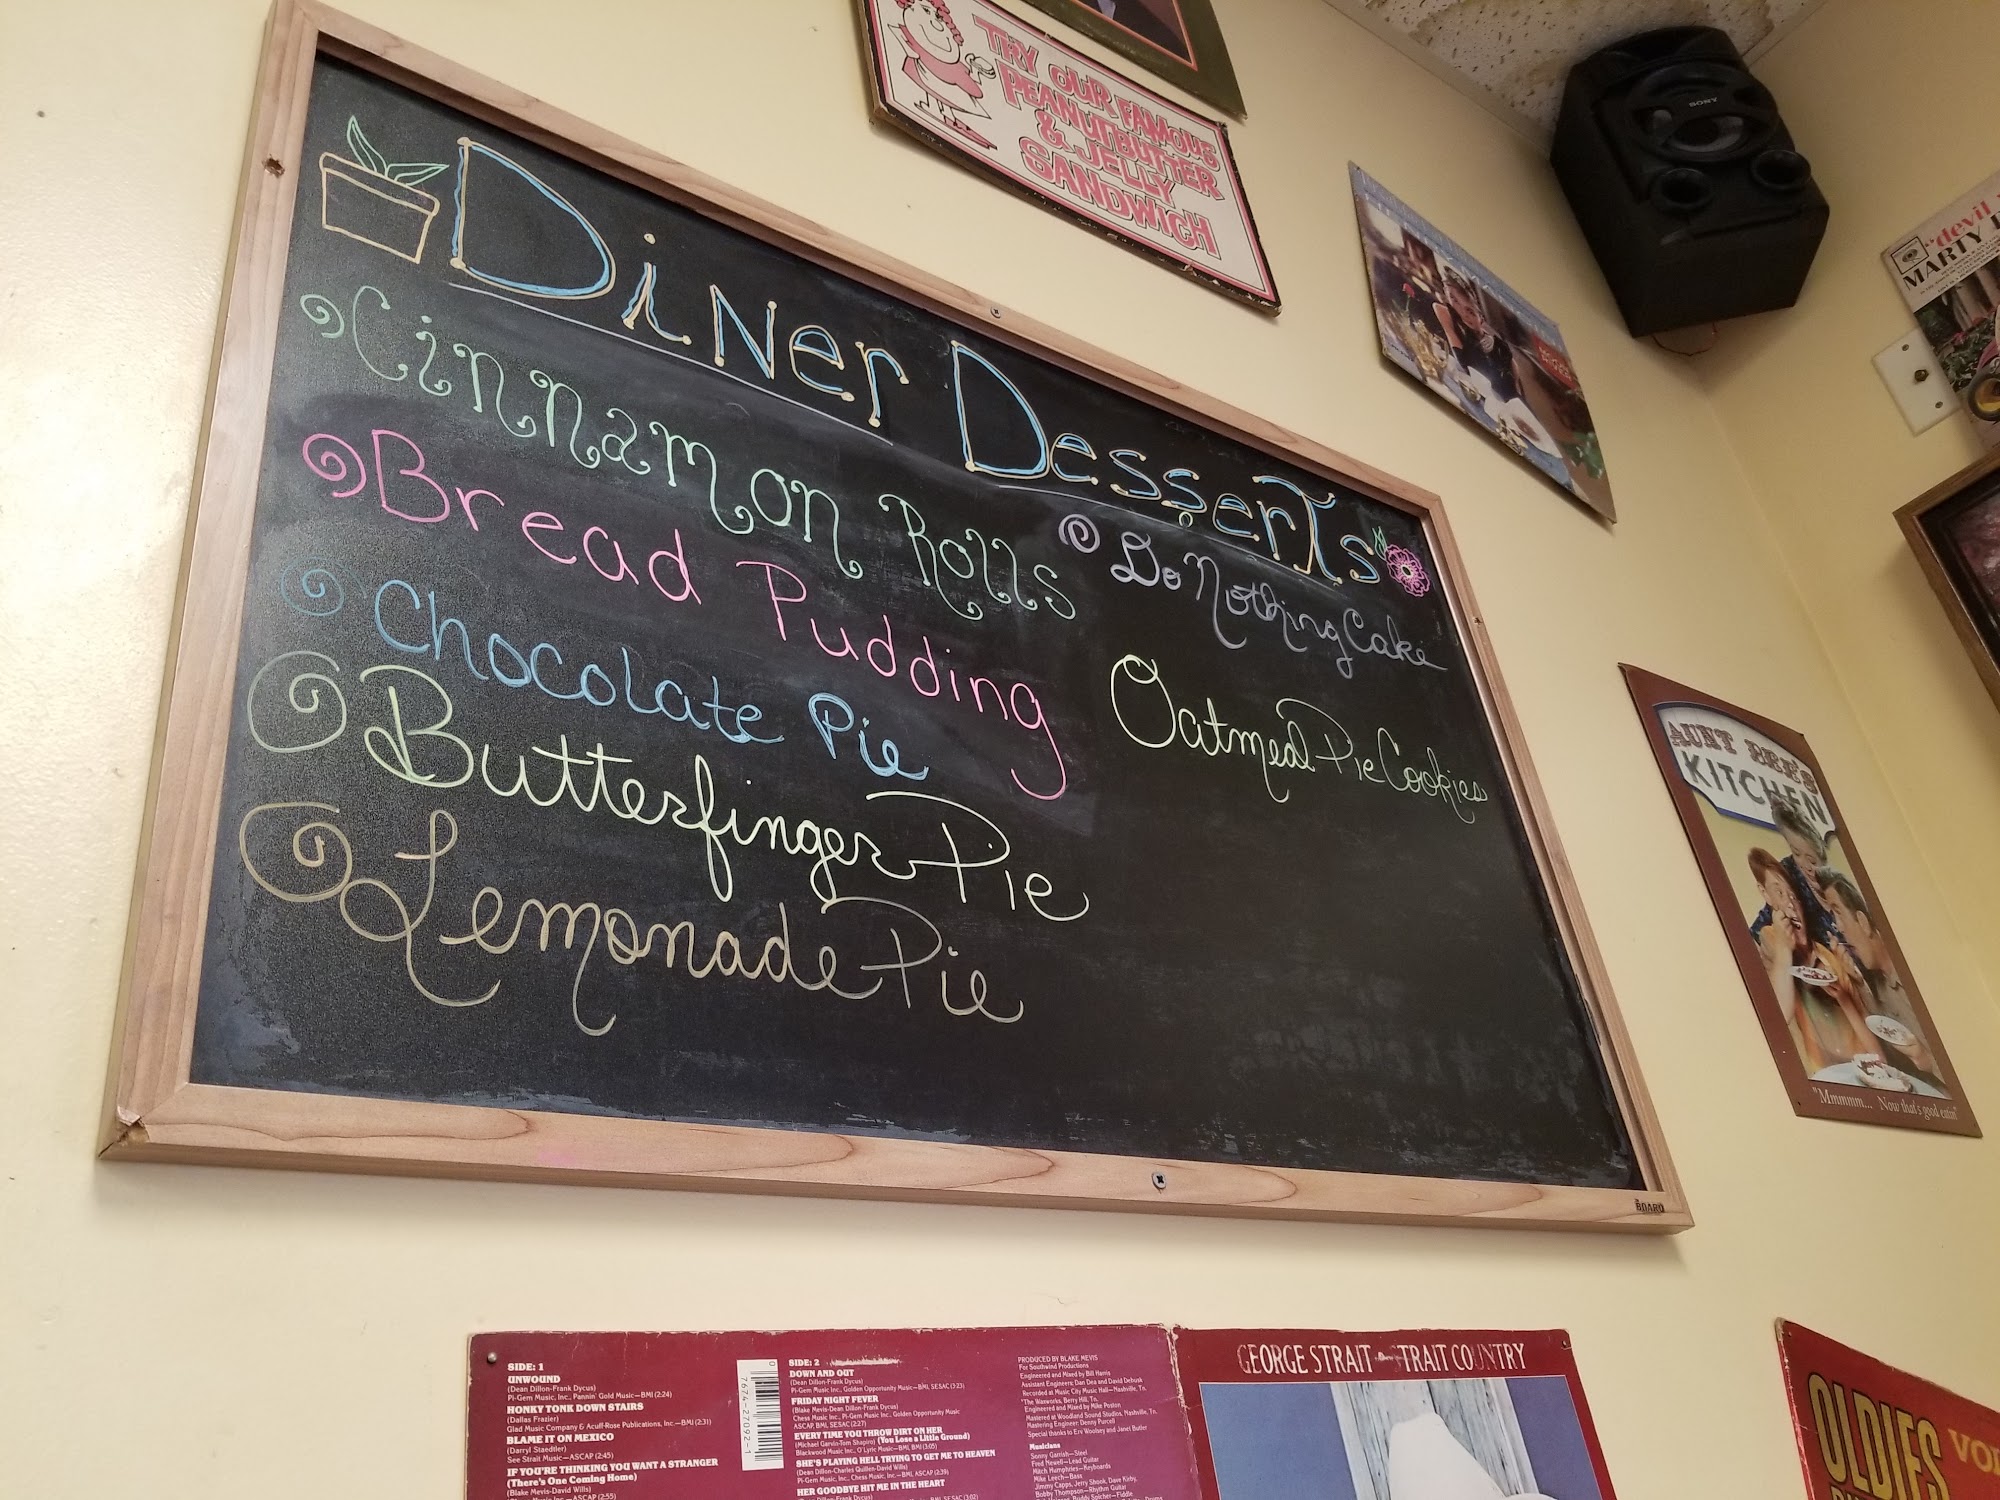 TRY OUR FAMOUS
PEANUTBUTTER
& JELLY
SANDWICH
SONY
"devil
MARTY
Diner Desserts
Cinnamon Rolls
Bread Pudding
Chocolate Pie
Butterfinger Pie
Lemonade Pie
Do Nothing Cake
Oatmeal Pie Cookies
AUNT BEE'S
KITCHEN
"Mmmmm... Now that's good eatin'"
BOARD
SIDE: 1
UNWOUND
(Dean Dillon-Frank Dycus)
Pi-Gem Music, Inc., Pannin' Gold Music—BMI (2:24)
HONKY TONK DOWN STAIRS
(Dallas Frazier)
Glad Music Company & Acuff-Rose Publications, Inc.—BMI (2:31)
BLAME IT ON MEXICO
(Darryl Staedtler)
See Strait Music—ASCAP (2:45)
IF YOU'RE THINKING YOU WANT A STRANGER
(There's One Coming Home)
(Blake Mevis-David Wills)
0 7674-27092-1
SIDE: 2
DOWN AND OUT
(Dean Dillon-Frank Dycus)
Pi-Gem Music, Inc., Golden Opportunity Music—BMI, SESAC (3:23)
FRIDAY NIGHT FEVER
(Blake Mevis-Dean Dillon-Frank Dycus)
Chess Music Inc., Pi-Gem Music Inc., Golden Opportunity Music
ASCAP, BMI, SESAC (2:27)
EVERY TIME YOU THROW DIRT ON HER
(Michael Garvin-Tom Shapiro) (You Lose a Little Ground)
Blackwood Music Inc., O'Lyric Music—BMI, BMI (3:05)
SHE'S PLAYING HELL TRYING TO GET ME TO HEAVEN
(Dean Dillon-Charles Quillen-David Wills)
Pi-Gem Music, Inc., Chess Music, Inc.—BMI, ASCAP (2:39)
HER GOODBYE HIT ME IN THE HEART
(Dean Dillon-Frank Dycus)
PRODUCED BY BLAKE MEVIS
For Southwind Productions
Engineered and Mixed by Bill Harris
Assistant Engineers: Dan Dea and David Debusk
Recorded at Music City Music Hall—Nashville, Tn.
*The Waxworks, Berry Hill, Tn.
Engineered and Mixed by Mike Poston
Mastered at Woodland Sound Studios, Nashville, Tn.
Mastering Engineer: Denny Purcell
Special thanks to Erv Woolsey and Janet Butler
Musicians
Sonny Garrish—Steel
Fred Newell—Lead Guitar
Mitch Humphries—Keyboards
Mike Leech—Bass
Jimmy Capps, Jerry Shook, Dave Kirby,
Bobby Thompson—Rhythm Guitar
GEORGE STRAIT STRAIT COUNTRY
OLDIES